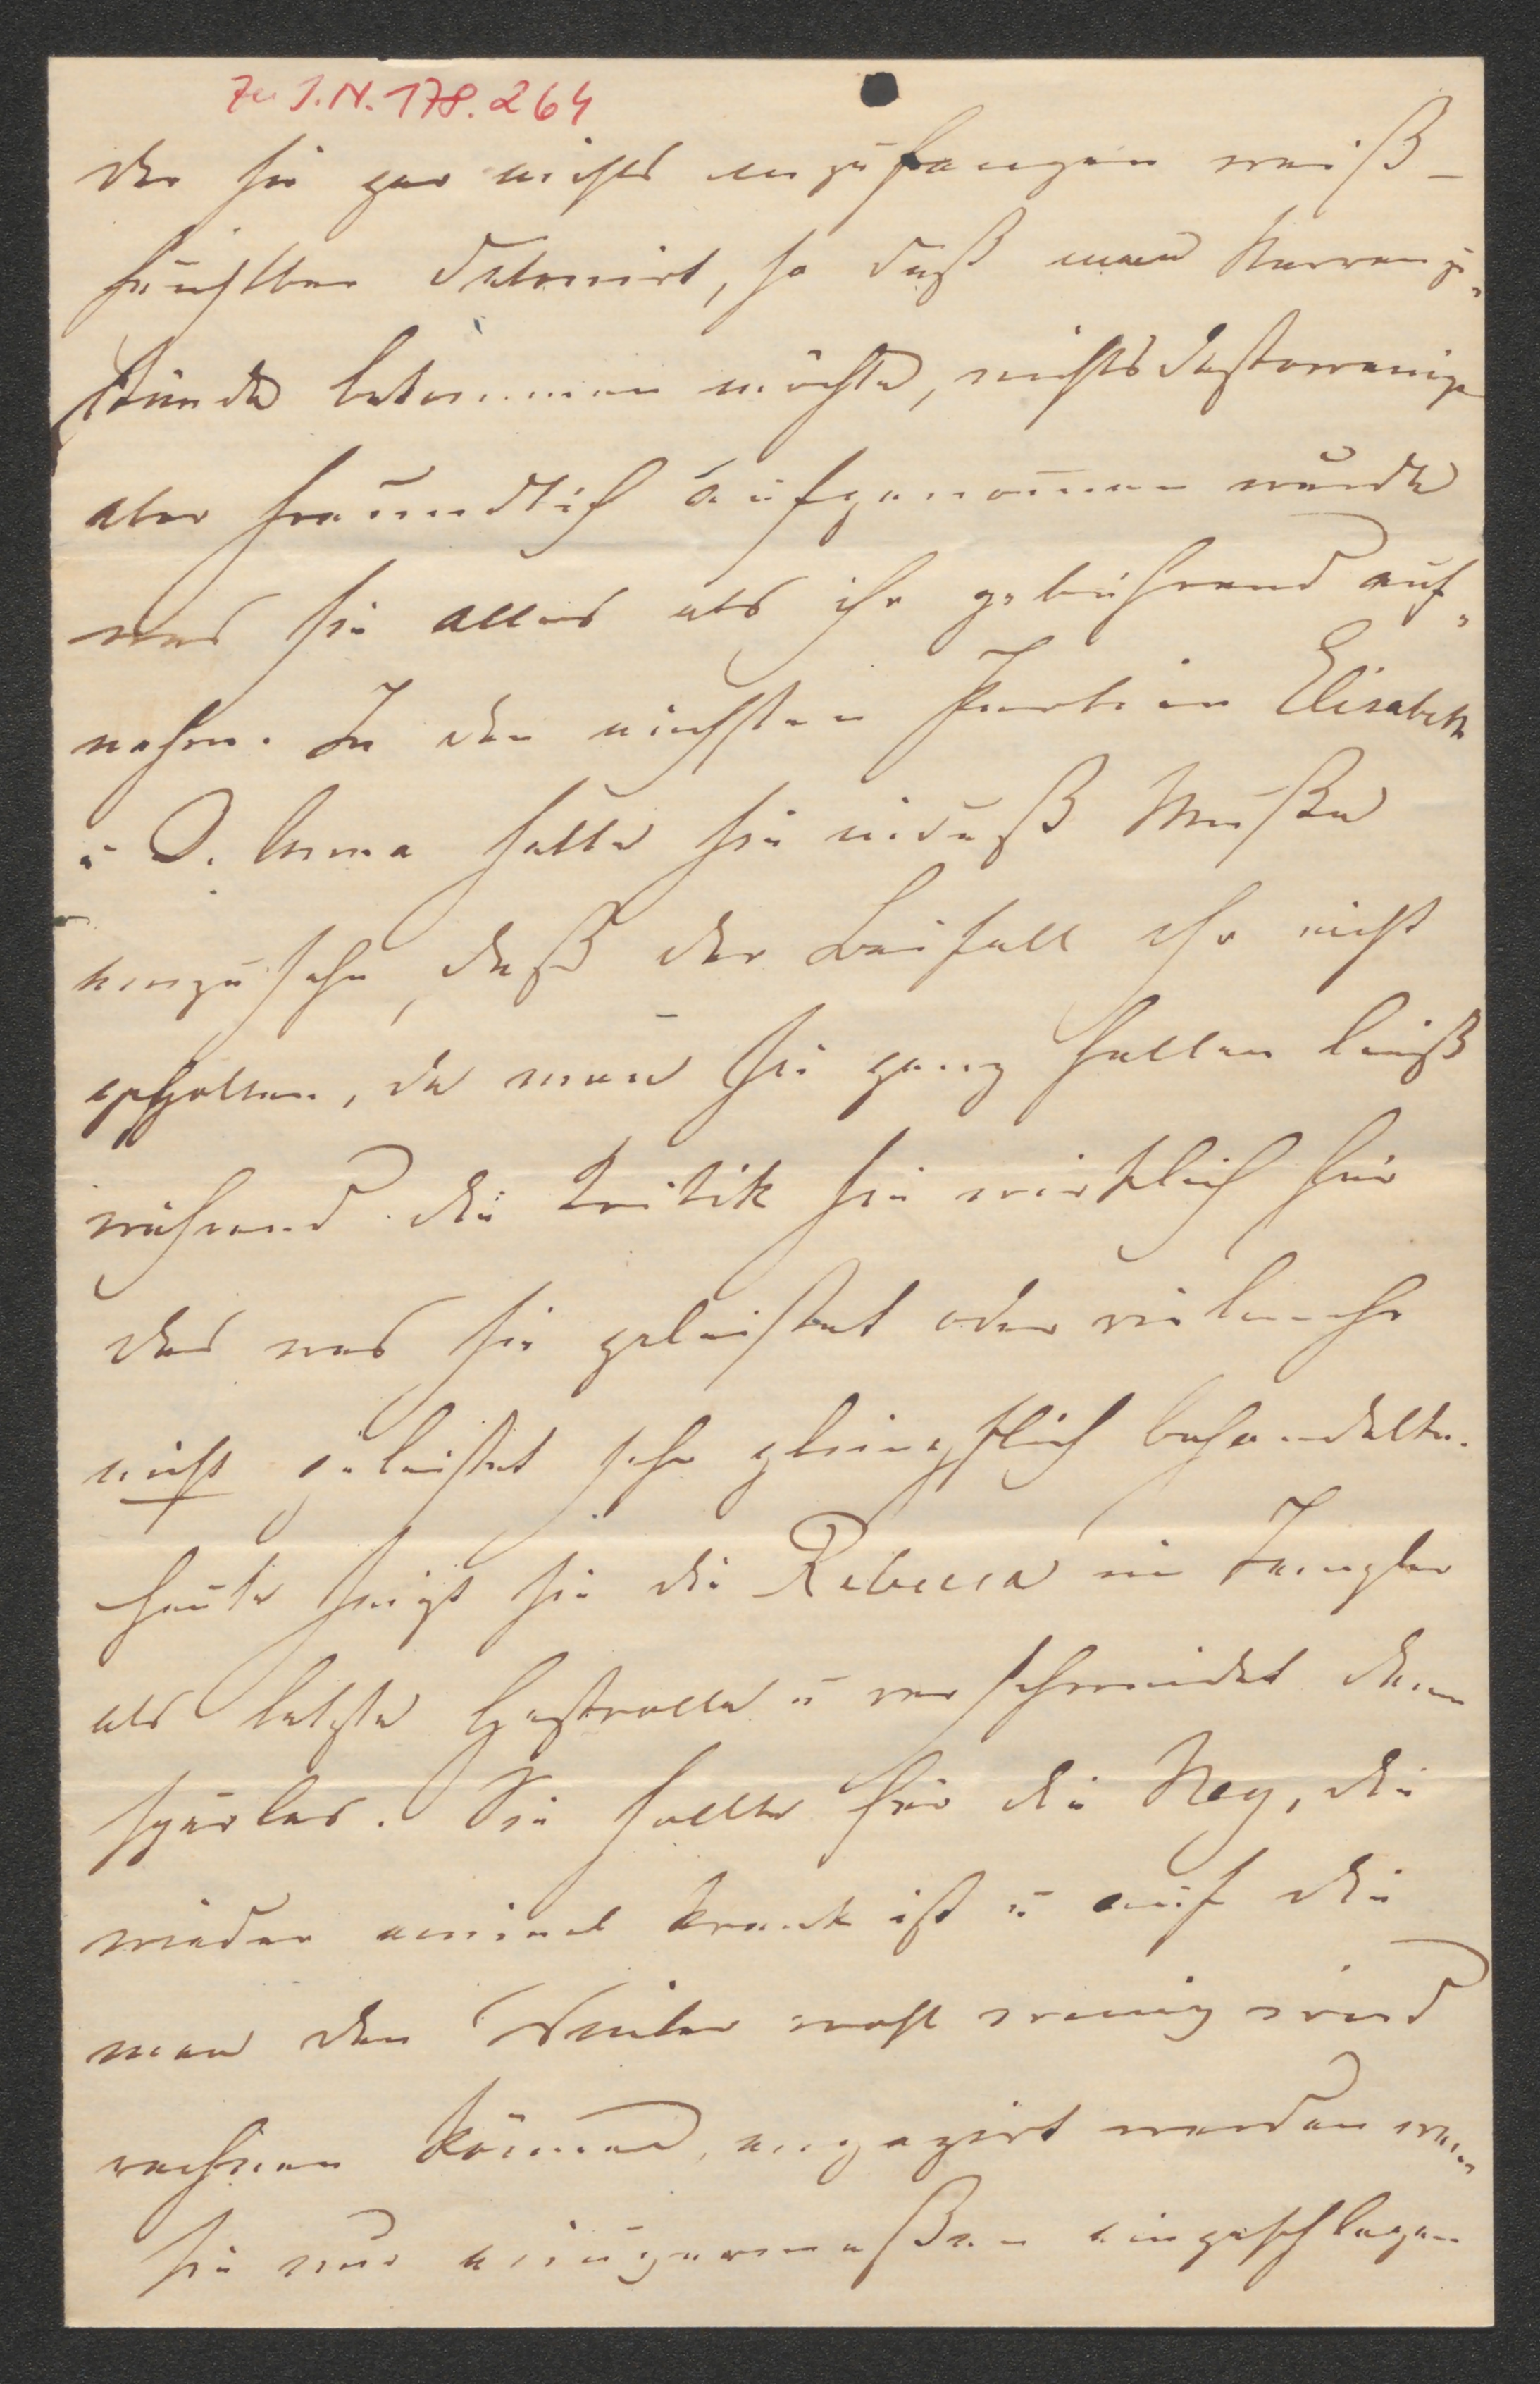 Zu I.N. 178.264
der sie gar nichts anzufangen weiß –
furchtbar detonirt, so daß man Nervenzu„
stände bekommen möchte, nichts destoweniger
aber freundlich aufgenom̅en wurde
was sie alles als ihr gebührend auf„
nahm. In den nächsten Partien Elisabeth
u D. Anna hatte sie indeß Muße
einzusehn, daß der Beifall ihr nicht
gegolten, da man sie ganz fallen ließ
während die Kritik sie wirklich für
das was sie geleistet oder vielmehr
nicht geleistet sehr glimpflich behandelte.
Heute singt sie die Rebecca im Templer
als letzte Gastrolle u verschwindet dann
spurlos. Sie sollte für die Ney, die
wieder einmal krank ist u auf die
man den Winter wohl wenig wird
rechnen können, engagirt werden wenn
sie nur einigermaßen eingeschlagen